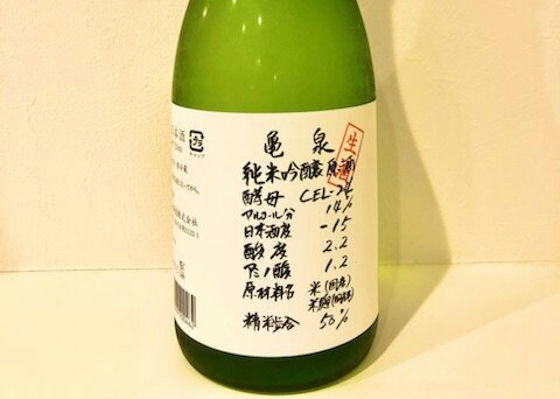 亀泉
生酒
純米吟醸原酒
酵母 CEL-24
アルコール分 14%
日本酒度 -15
酸度 2.2
アミノ酸 1.2
原材料名 米(国産)
米麹(国産米)
精米歩合 50%
本酒
キャップ
株式会社